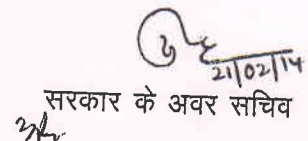 21/02/14
सरकार के अवर सचिव